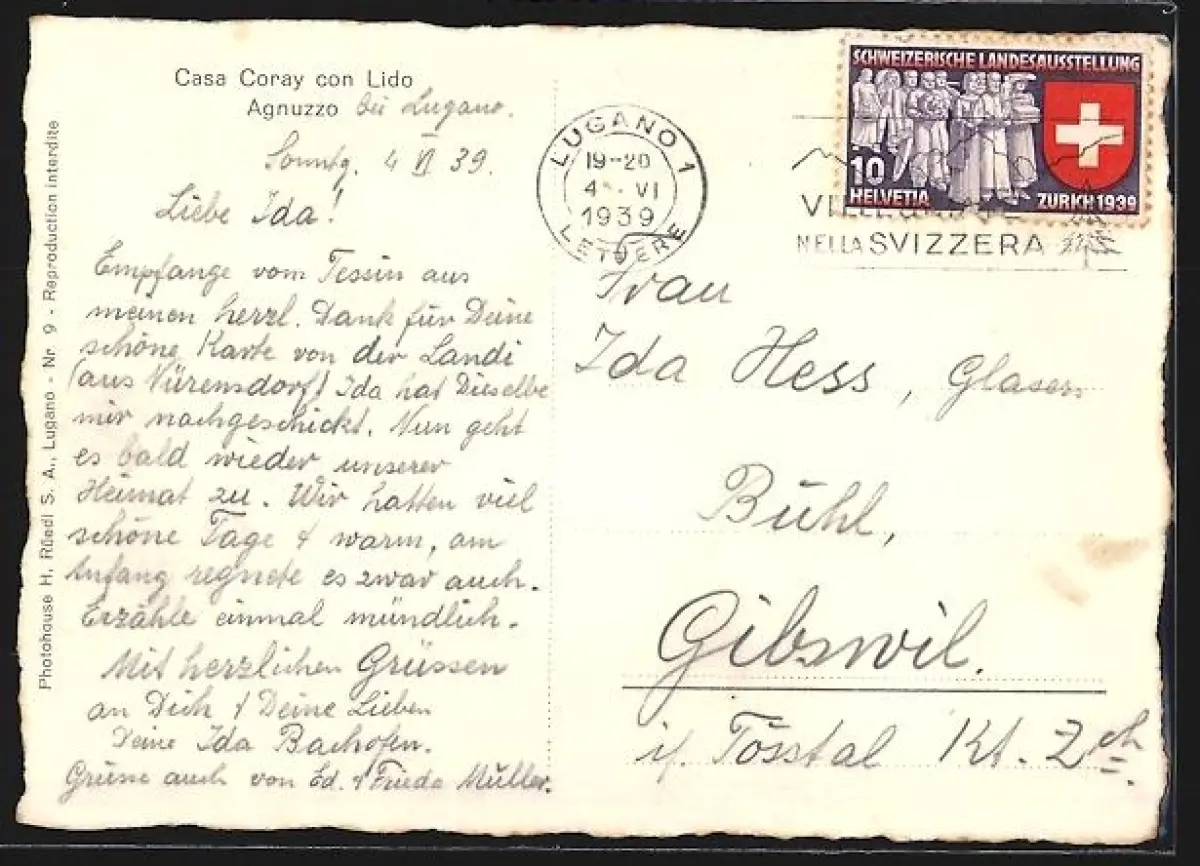 Casa Coray con Lido
Agnuzzo bei Lugano.
Sonntg. 4 VI 39.
Liebe Ida!
Empfange vom Tessin aus
meinen herzl. Dank für Deine
schöne Karte von der Landi
(aus Nürensdorf) Ida hat Dieselbe
mir nachgeschickt. Nun geht
es bald wieder unserer
Heimat zu. Wir hatten viel
schöne Tage & warm, am
Anfang regnete es zwar auch.
Erzähle einmal mündlich.
Mit herzlichen Grüssen
an Dich & Deine Lieben
Deine Ida Bachofen.
Grüsse auch von Ed. & Frieda Müller.
Photohouse H. Rüedi S. A., Lugano - Nr. 9 - Reproduction interdite
LUGANO 1
19-20
4. VI
1939
LETTERE
SCHWEIZERISCHE LANDESAUSSTELLUNG
10
HELVETIA
ZÜRICH 1939
NELLA SVIZZERA
Frau
Ida Hess, Glasers
Bühl,
Gibswil.
i/. Tösstal Kt. Zch.